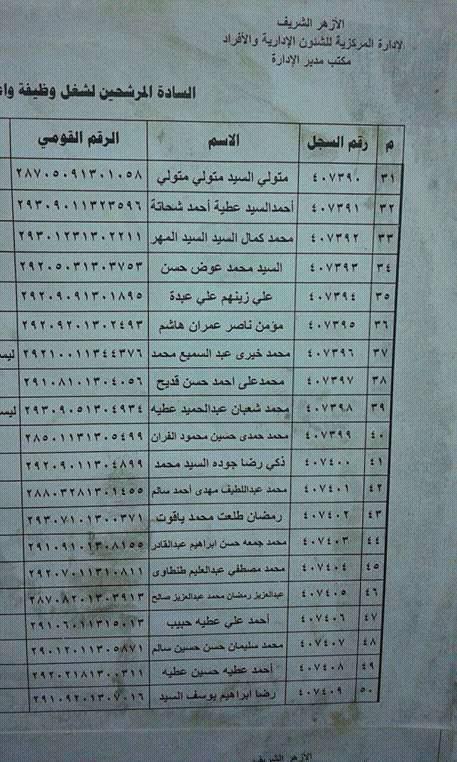 الأزهر الشريف
لإدارة المركزية للشئون الإدارية والأفراد
مكتب مدير الإدارة
السادة المرشحين لشغل وظيفة
م رقم السجل الاسم الرقم القومي
٣١ ٤٠٧٣٩٠ متولي السيد متولي متولي ٢٨٧٠٥٠٩١٣٠١٠٥٨
٣٢ ٤٠٧٣٩١ أحمدالسيد عطية أحمد شحاتة ٢٩٣٠٩٠١١٣٢٣٥٩٦
٣٣ ٤٠٧٣٩٢ محمد كمال السيد السيد المهر ٢٩٣٠١٢٣١٣٠٢٢١١
٣٤ ٤٠٧٣٩٣ السيد محمد عوض حسن ٢٩٢٠٥٠٣١٣٠٣٧٥٣
٣٥ ٤٠٧٣٩٤ علي زينهم علي عبدة ٢٩٢٠٩٠٩١٣٠١٨٩٥
٣٦ ٤٠٧٣٩٥ مؤمن ناصر عمران هاشم ٢٩٢٠٩٢٠١٣٠٢٤٩٣
٣٧ ٤٠٧٣٩٦ محمد خيرى عبد السميع محمد ٢٩٢١٠٠١١٣٤٤٣٧٦
٣٨ ٤٠٧٣٩٧ محمدعلى احمد حسن قديح ٢٩١٠٨١٠١٣٠٤٠٥٦
٣٩ ٤٠٧٣٩٨ محمد شعبان عبدالحميد عطيه ٢٩٣٠٩٠٥١٣٠٤٩٣٤
٤٠ ٤٠٧٣٩٩ محمد حمدى حسين محمود الفران ٢٨٥٠١١٣١٣٠٥٤٩٩
٤١ ٤٠٧٤٠٠ ذكي رضا جوده السيد محمد ٢٩٢٠٩٠١١٣٠٤٨٩٩
٤٢ ٤٠٧٤٠١ محمد عبداللطيف مهدى أحمد سالم ٢٨٨٠٣٢٨١٣٠١٤٥٥
٤٣ ٤٠٧٤٠٢ رمضان طلعت محمد ياقوت ٢٩٣٠٧١٠١٣٠٠٣٧١
٤٤ ٤٠٧٤٠٣ محمد جمعه حسن ابراهيم عبدالقادر ٢٩١٠٩١٠١٣٠٨١٥٥
٤٥ ٤٠٧٤٠٤ محمد مصطفي عبدالعليم طنطاوى ٢٩٢٠٧٠١١٣١٠٨١١
٤٦ ٤٠٧٤٠٥ عبدالعزيز رمضان محمد عبدالعزيز صالح ٢٨٧٠٨٢٠١٣٠٣٩١٣
٤٧ ٤٠٧٤٠٦ أحمد علي عطيه حبيب ٢٩١٠٦٠٩١١٣١٥٠١٣
٤٨ ٤٠٧٤٠٧ محمد سليمان حسن حسين سالم ٢٩٠١٢٠١١٣٠٥٨٧١
٤٩ ٤٠٧٤٠٨ أحمد عطيه حسين عطيه ٢٩٢٠٢١٨١٣٠٠٣١١
٥٠ ٤٠٧٤٠٩ رضا ابراهيم يوسف السيد ٢٩١٠٩٢٠١٣٠٧٠١٦
الأزهر الشريف